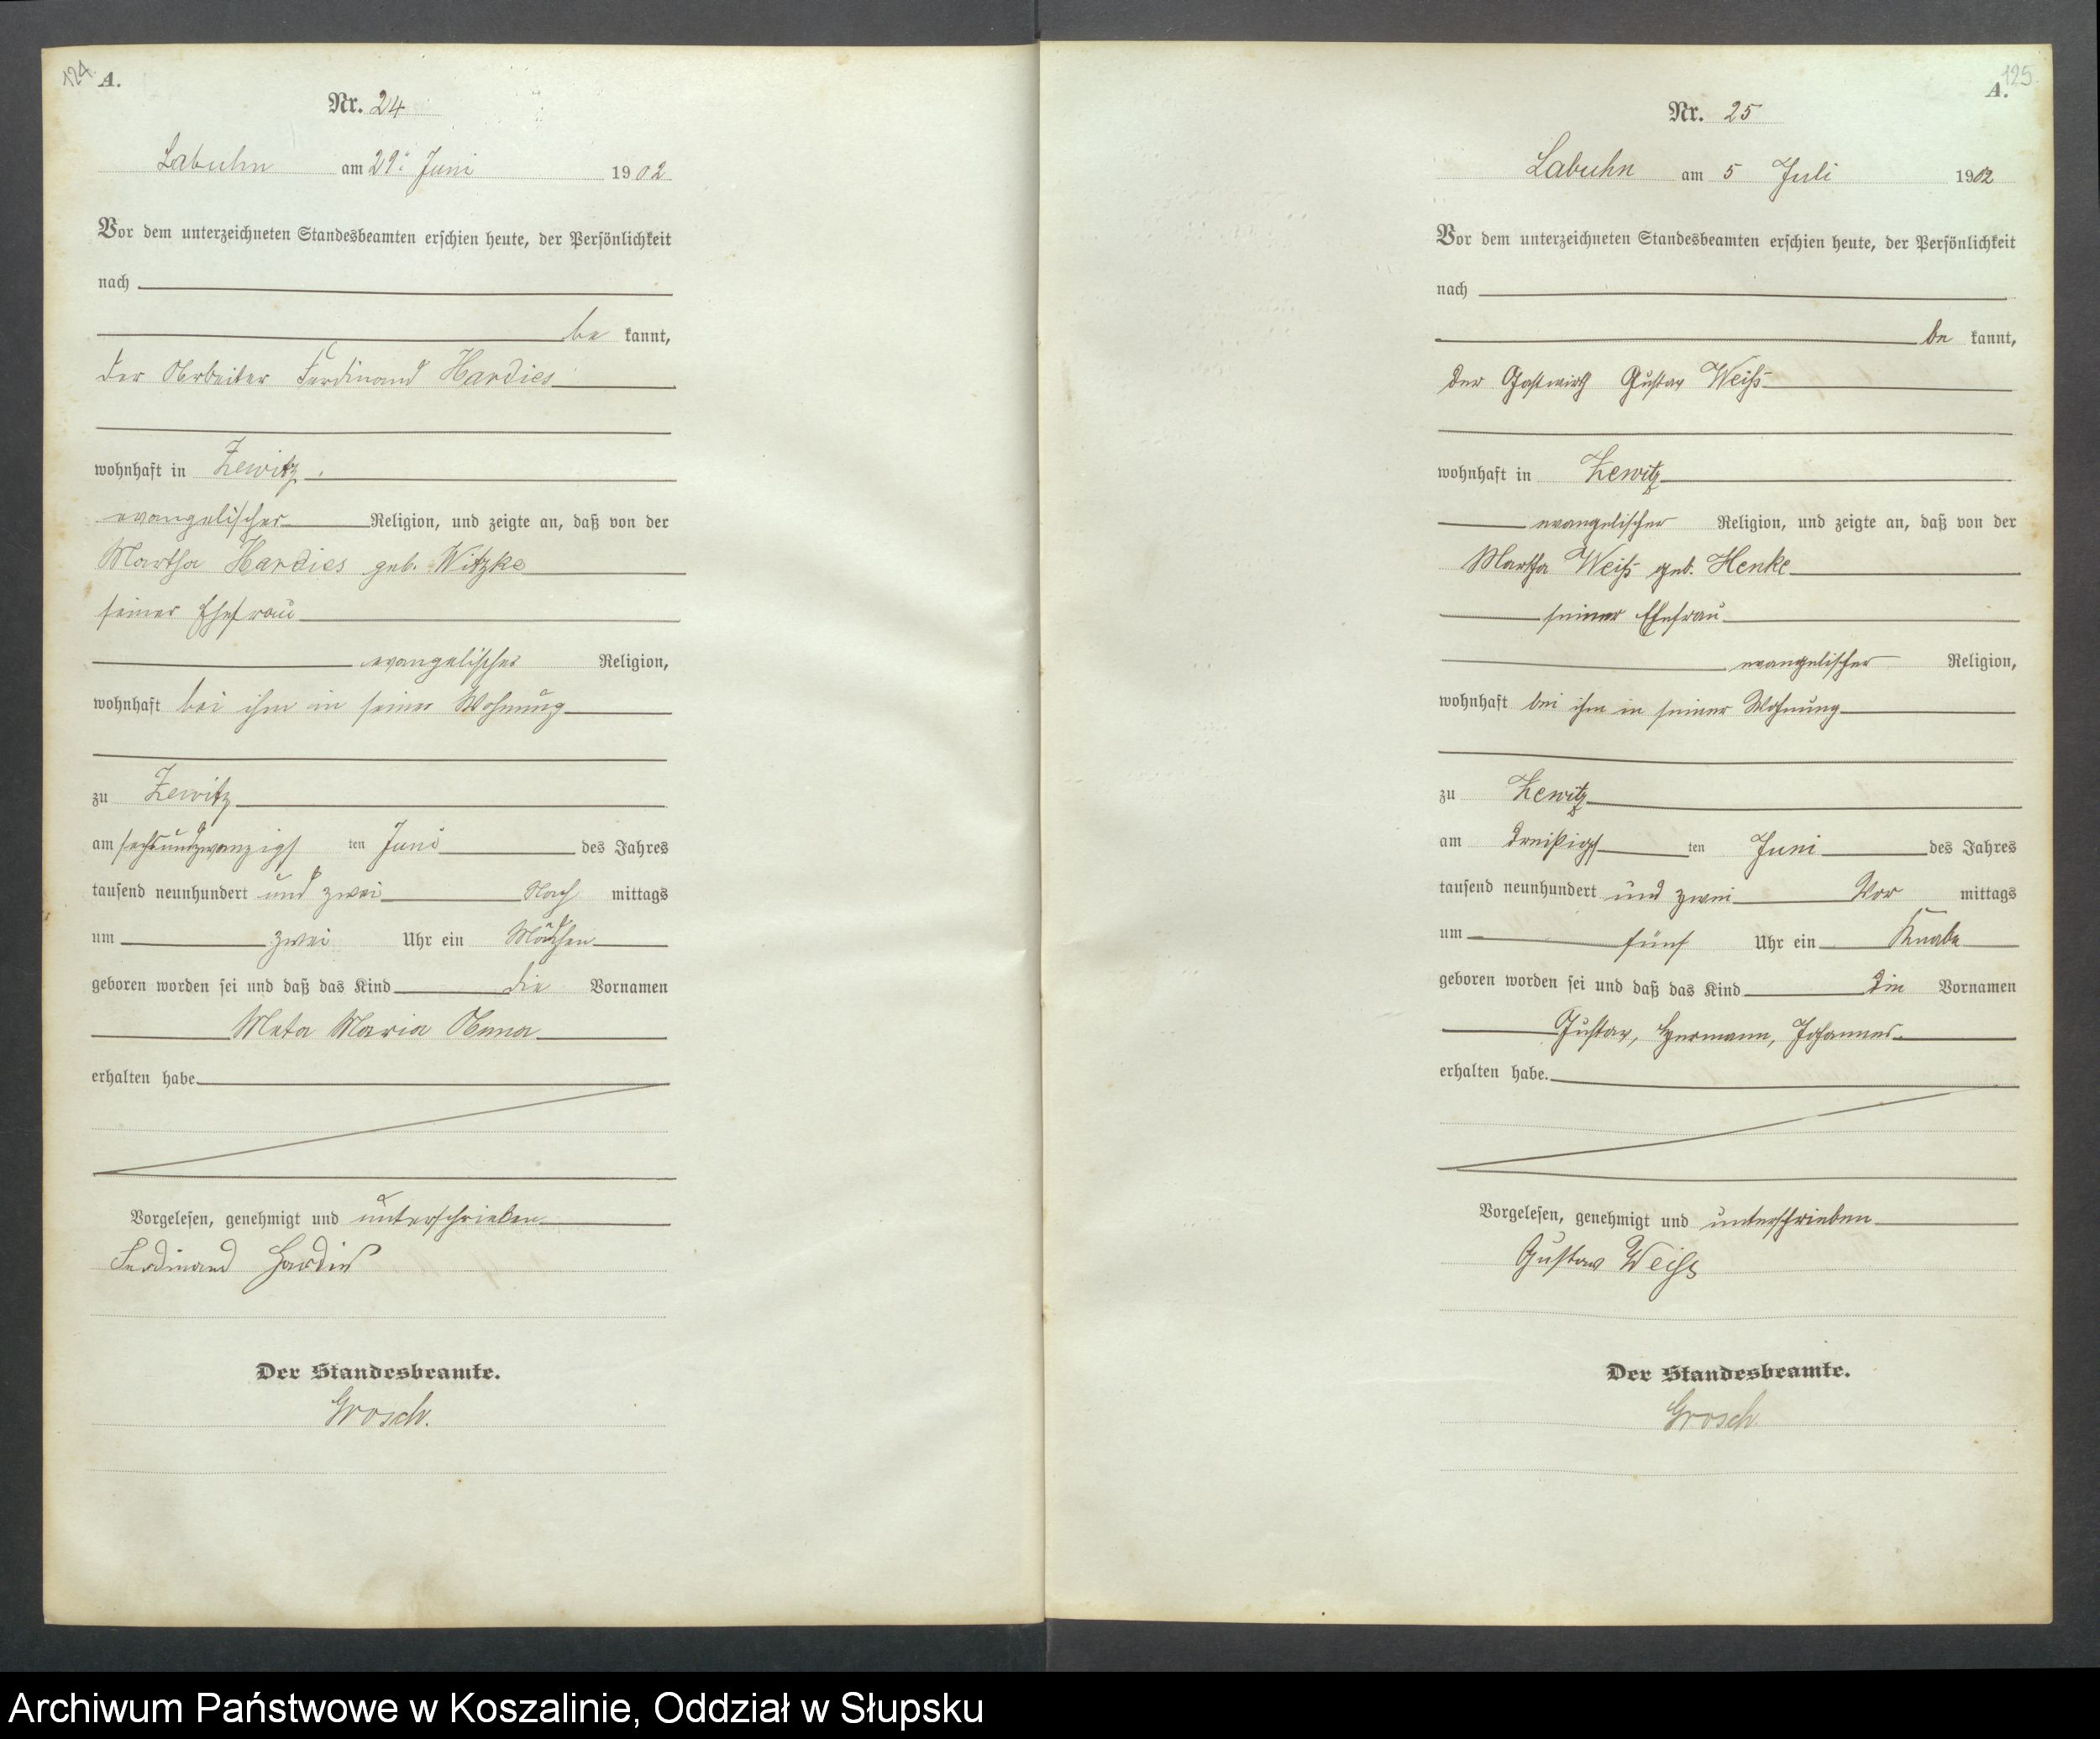 124.
A.
Nr. 24
Labuhn am 29. Juni 1902
Vor dem unterzeichneten Standesbeamten erschien heute, der Persönlichkeit
nach
be kannt,
der Arbeiter Ferdinand Hardies
wohnhaft in Zewitz
evangelischer Religion, und zeigte an, daß von der
Martha Hardies geb. Witzke
seiner Ehefrau
evangelischer Religion,
wohnhaft bei ihm in seiner Wohnung
zu Zewitz
am sechsundzwanzigsten Juni des Jahres
tausend neunhundert und zwei Nach mittags
um zwei Uhr ein Mädchen
geboren worden sei und daß das Kind die Vornamen
Meta Maria Anna
erhalten habe
Vorgelesen, genehmigt und unterschrieben
Ferdinand Hardies
Der Standesbeamte.
Grosch.
125.
A.
Nr. 25
Labuhn am 5 Juli 1902
Vor dem unterzeichneten Standesbeamten erschien heute, der Persönlichkeit
nach
be kannt,
der Gastwirth Gustav Weiß
wohnhaft in Zewitz
evangelischer Religion, und zeigte an, daß von der
Martha Weiß geb. Henke
seiner Ehefrau
evangelischer Religion,
wohnhaft bei ihm in seiner Wohnung
zu Zewitz
am dreißigsten Juni des Jahres
tausend neunhundert und zwei Vor mittags
um fünf Uhr ein Knabe
geboren worden sei und daß das Kind die Vornamen
Gustav, Hermann, Johannes
erhalten habe.
Vorgelesen, genehmigt und unterschrieben
Gustav Weiß
Der Standesbeamte.
Grosch.
Archiwum Państwowe w Koszalinie, Oddział w Słupsku